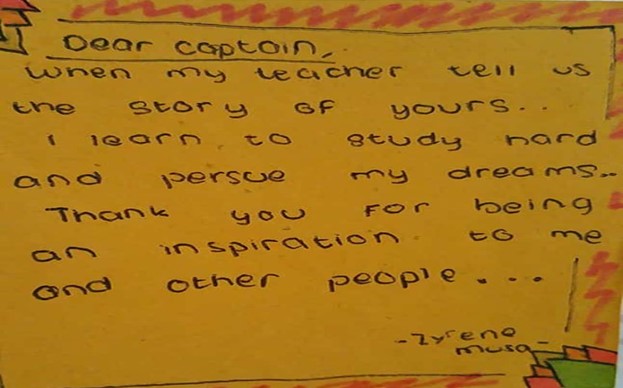 Dear captain,
When my teacher tell us
the story of yours..
I learn to study hard
and persue my dreams...
Thank you for being
an inspiration to me
and other people....
-Zyrene
Musa-